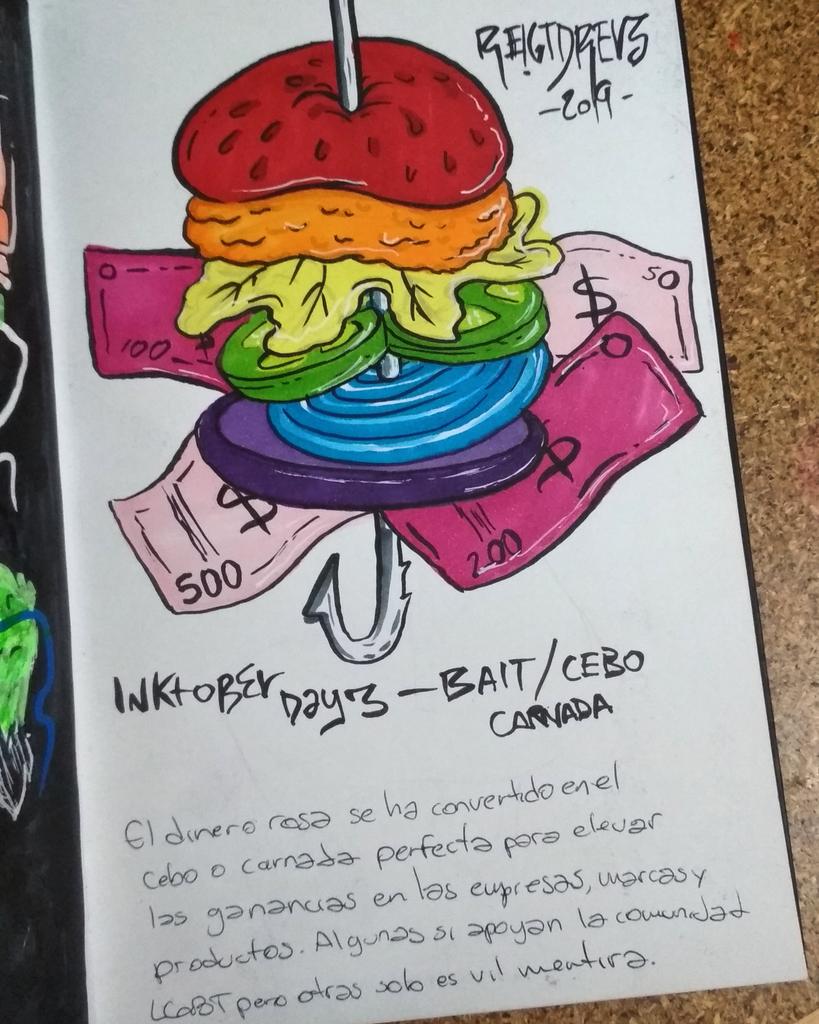 REIGTDREVS
-2019-
50
$
100 $
$
$
500
200
INKtOBEr Day 3 - BAIT/CEBO
CARNADA
El dinero rosa se ha convertido en el
cebo o carnada perfecta para elevar
las ganancias en las empresas, marcas y
productos. Algunas si apoyan la comunidad
LGBT pero otras solo es vil mentira.